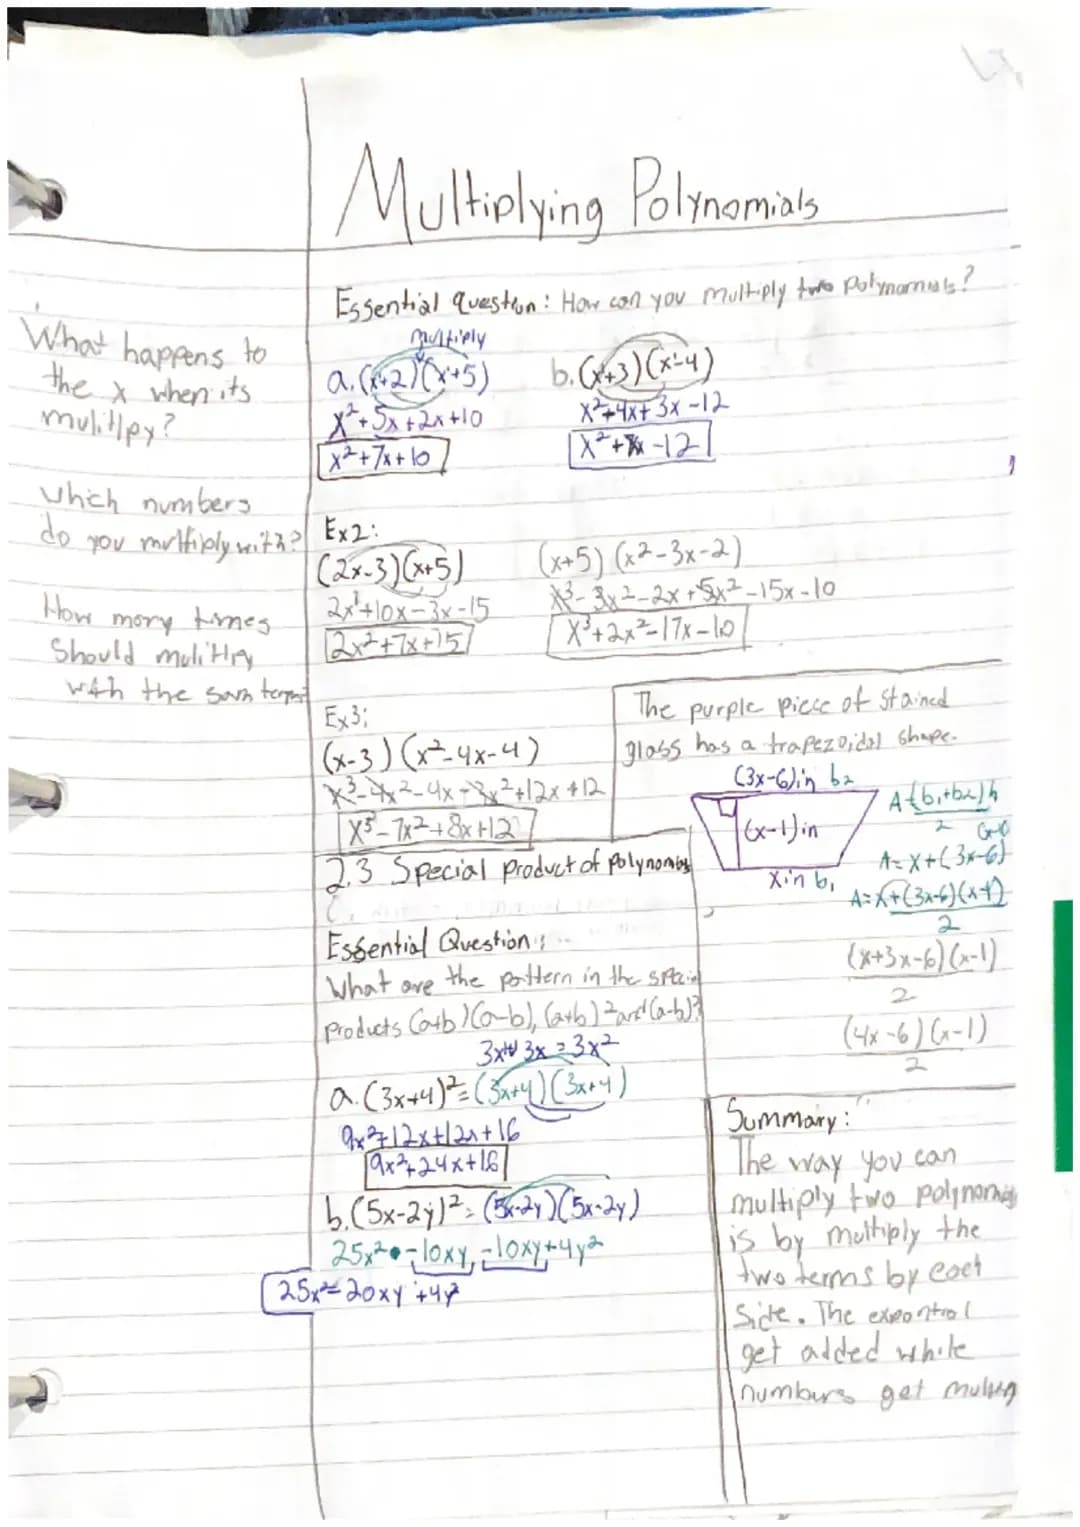 Multiplying Polynomials
Essential question: How can you multiply two Polynomials?
What happens to
the x when its
mulitlpy?
which numbers
do you multiply with?
How many times
Should mulitlpy
with the sam
multiply
a. (x+2)(x+5)
x²+5x+2x+10
x²+7x+10
b. (x+3)(x-4)
x²+4x+3x-12
x²+ x-12
Ex2:
(2x-3)(x+5)
2x²+10x-3x-15
2x²+7x+15
(x+5)(x²-3x-2)
x³-3x²-2x+5x²-15x-10
x³+2x²-17x-10
Ex3:
(x-3)(x²-4x-4)
x³-4x²-4x-3x²+12x+12
x³-7x²+8x+12
The purple piece of stained
glass has a trapezoidal shape.
(3x-6)in b₂
(x-1)in
x in b₁
A=(b₁+b₂)h
2
A=x+(3x-6)
A=x+(3x-6)(x-1)
2
(x+3x-6)(x-1)
2
(4x-6)(x-1)
2
2.3 Special product of polynomials
Essential Question:
What are the pattern in the special
products (a+b)(a-b), (a+b)² and (a-b)?
3x 3x = 3x²
a. (3x+4)²=(3x+4)(3x+4)
9x²+12x+12x+16
9x²+24x+16
b. (5x-2y)²=(5x-2y)(5x-2y)
25x² -10xy, -10xy+4y²
25x²-20xy+4y²
Summary:
The way you can
multiply two polynomials
is by multiply the
two terms by each
side. The
get added while
numbers get